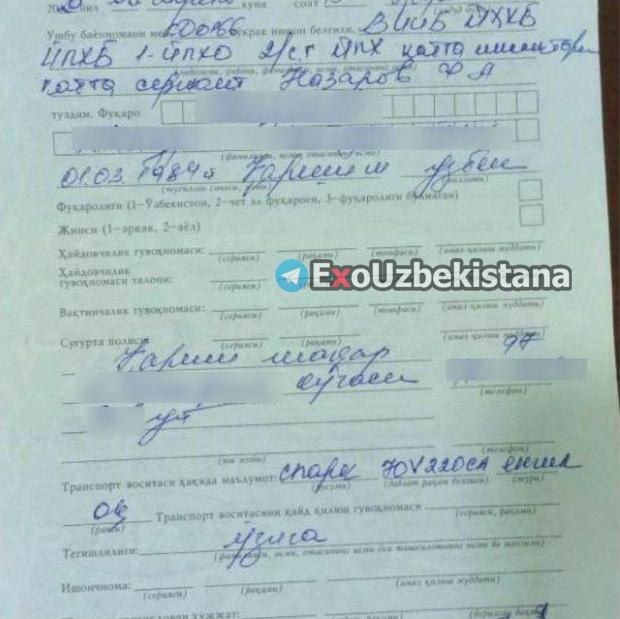 20 йил куни соат
Ушбу баённомани мен 00066 кўкрак нишон белгили, ВИИБ ЙҲХБ
ЙПХБ 1-ЙПХО 2/с.г ЙПХ катта инспектори
катта сержант Назаров Ф А
тузлим. Фуқаро
(фамилияси, исми, отасининг исми)
01.03.1984й Қарши ш ўзбек
(туғилган санаси, жойи) (миллати)
Фуқаролиги (1–Ўзбекистон, 2–чет эл фуқароси, 3–фуқаролиги бўлмаган)
Жинси (1–эркак, 2–аёл)
Ҳайдовчилик гувоҳномаси:
(серияси) (рақами) (тоифаси) (амал қилиш муддати)
Ҳайдовчилик
гувоҳномаси талони:
(серияси)
ExoUzbekistana
Вақтинчалик гувоҳномаси:
(серияси) (рақами) (тоифаси) (амал қилиш муддати)
Суғурта полиси
(серияси) (рақами) (амал қилиш муддати)
Қарши шаҳар 97
кўчаси
(телефон)
уй
(иш жойи) (телефон)
Транспорт воситаси ҳақида маълумот: спарк 70V220CA енгил
(русуми) (давлат рақам белгиси) (тури)
оқ Транспорт воситасини қайд қилиш гувоҳномаси
(ранги) (серияси, рақами)
Тегишлилиги: ўзига
(фамилияси, исми, отасининг исми ёки ташкилотнинг номи ва манзили)
Ишончнома:
(серияси) (рақами) (амал қилиш муддати)
ҳужжат: